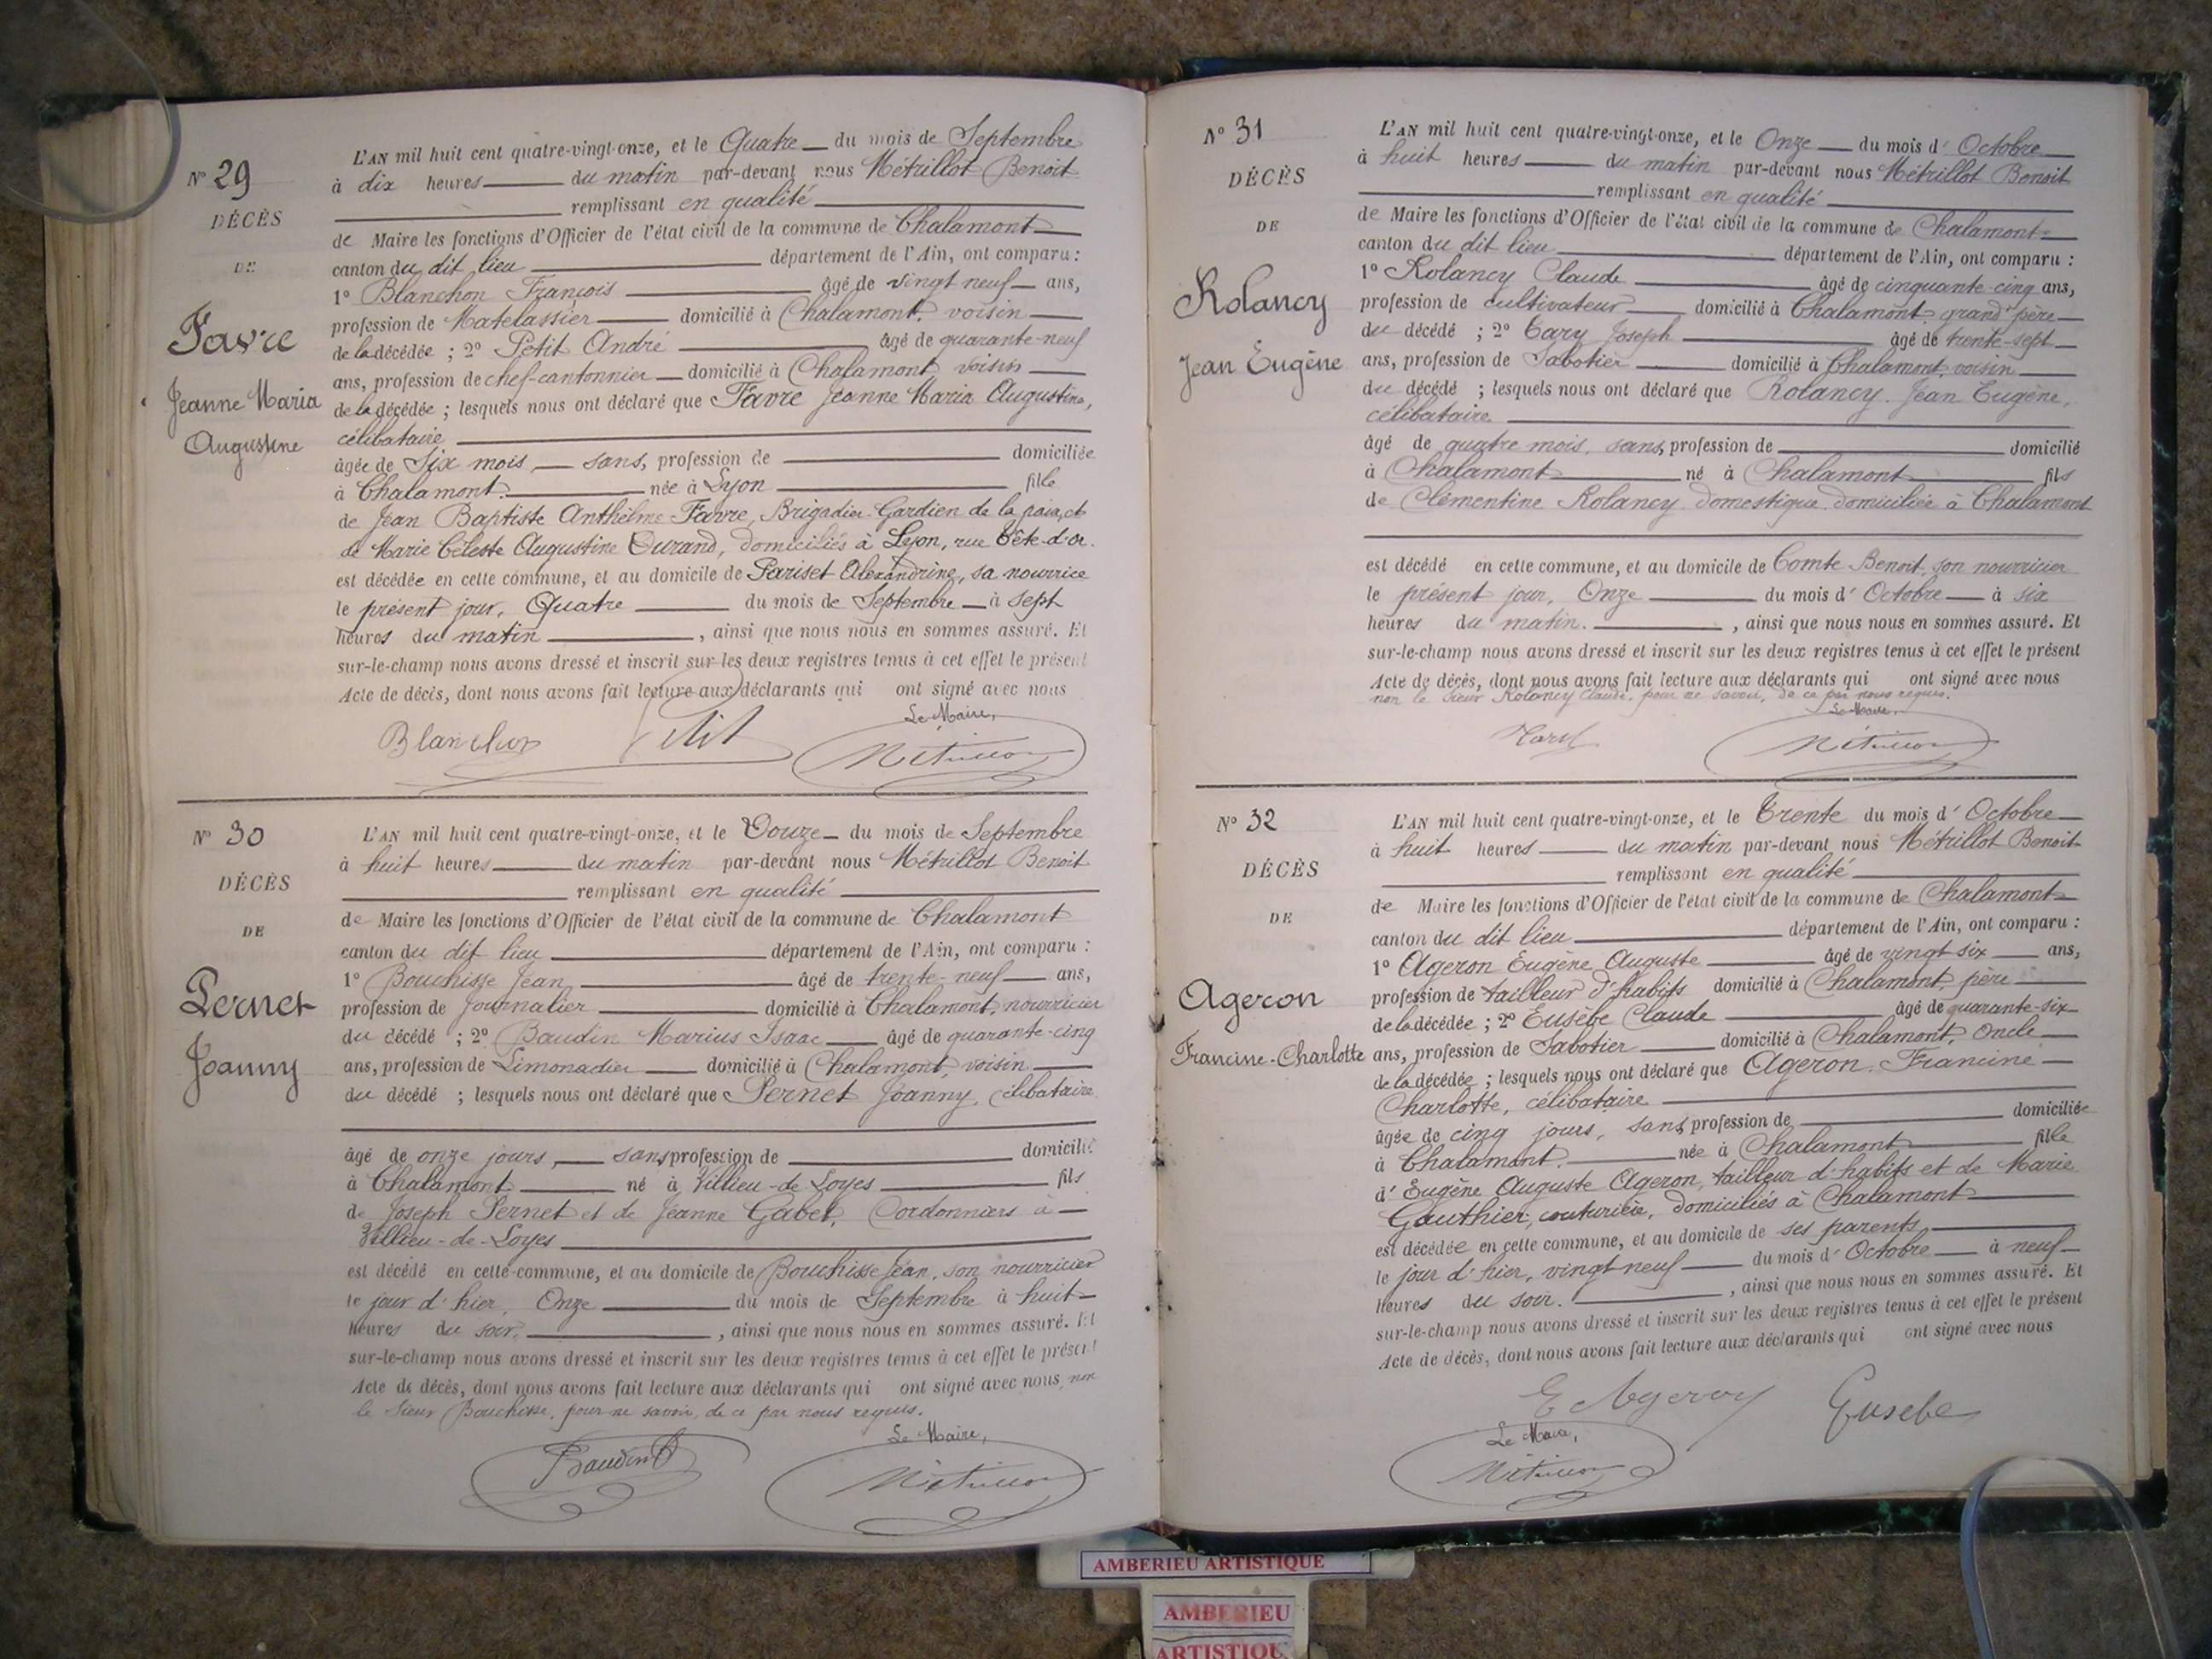 N° 29
DÉCÈS
DE
Favre
Jeanne Maria
Augustine
L'AN mil huit cent quatre-vingt-onze, et le Quatre du mois de Septembre
à dix heures du matin par-devant nous Métrillot Benoit
remplissant en qualité
de Maire les fonctions d'Officier de l'état civil de la commune de Chalamont
canton du dit lieu département de l'Ain, ont comparu :
1° Blanchon François âgé de vingt neuf ans,
profession de Matelassier domicilié à Chalamont, voisin
de la décédée ; 2° Petit André âgé de quarante-neuf
ans, profession de chef-cantonnier domicilié à Chalamont, voisin
de la décédée ; lesquels nous ont déclaré que Favre Jeanne Maria Augustine,
célibataire
âgée de Six mois, sans, profession de domiciliée
à Chalamont. née à Lyon fille
de Jean Baptiste Anthelme Favre, Brigadier-Gardien de la paix, et
de Marie Céleste Augustine Durand, domiciliés à Lyon, rue Tête-d'or.
est décédée en cette commune, et au domicile de Pariset Alexandrine, sa nourrice
le présent jour, Quatre du mois de Septembre à sept
heures du matin , ainsi que nous nous en sommes assuré. Et
sur-le-champ nous avons dressé et inscrit sur les deux registres tenus à cet effet le présent
Acte de décès, dont nous avons fait lecture aux déclarants qui ont signé avec nous
Le Maire,
Blanchon Petit Métrillot
N° 30
DÉCÈS
DE
Pernet
Joanny
L'AN mil huit cent quatre-vingt-onze, et le Douze du mois de Septembre
à huit heures du matin par-devant nous Métrillot Benoit
remplissant en qualité
de Maire les fonctions d'Officier de l'état civil de la commune de Chalamont
canton du dit lieu département de l'Ain, ont comparu :
1° Bouchisse Jean âgé de trente-neuf ans,
profession de Journalier domicilié à Chalamont, nourricier
du décédé ; 2° Baudin Marius Isaac âgé de quarante-cinq
ans, profession de Limonadier domicilié à Chalamont, voisin
du décédé ; lesquels nous ont déclaré que Pernet Joanny, célibataire
âgé de onze jours, sans profession de domicilié
à Chalamont né à Villieu-de Loyes fils
de Joseph Pernet et de Jeanne Gabet, Cordonniers à
Villieu-de-Loyes
est décédé en cette commune, et au domicile de Bouchisse Jean, son nourricier
le jour d'hier, Onze du mois de Septembre à huit
heures du soir. , ainsi que nous nous en sommes assuré. Et
sur-le-champ nous avons dressé et inscrit sur les deux registres tenus à cet effet le présent
Acte de décès, dont nous avons fait lecture aux déclarants qui ont signé avec nous, non
le Sieur Bouchisse, pour ne savoir, de ce par nous requis.
Le Maire,
Baudin Métrillot
N° 31
DÉCÈS
DE
Rolancy
Jean Eugène
L'AN mil huit cent quatre-vingt-onze, et le Onze du mois d' Octobre
à huit heures du matin par-devant nous Métrillot Benoit
remplissant en qualité
de Maire les fonctions d'Officier de l'état civil de la commune de Chalamont
canton du dit lieu département de l'Ain, ont comparu :
1° Rolancy Claude âgé de cinquante-cinq ans,
profession de cultivateur domicilié à Chalamont, grand'père
du décédé ; 2° Tary Joseph âgé de trente-sept
ans, profession de Sabotier domicilié à Chalamont, voisin
du décédé ; lesquels nous ont déclaré que Rolancy Jean Eugène,
célibataire.
âgé de quatre mois, sans, profession de domicilié
à Chalamont né à Chalamont fils
de Clémentine Rolancy domestique domiciliée à Chalamont
est décédé en cette commune, et au domicile de Comte Benoit, son nourricier
le présent jour, Onze du mois d' Octobre à six
heures du matin. , ainsi que nous nous en sommes assuré. Et
sur-le-champ nous avons dressé et inscrit sur les deux registres tenus à cet effet le présent
Acte de décès, dont nous avons fait lecture aux déclarants qui ont signé avec nous
non le Sieur Rolancy Claude, pour ne savoir, de ce par nous requis.
Le Maire,
Métrillot
N° 32
DÉCÈS
DE
Ageron
Francine-Charlotte
L'AN mil huit cent quatre-vingt-onze, et le Trente du mois d' Octobre
à huit heures du matin par-devant nous Métrillot Benoit
remplissant en qualité
de Maire les fonctions d'Officier de l'état civil de la commune de Chalamont
canton du dit lieu département de l'Ain, ont comparu :
1° Ageron Eugène Auguste âgé de vingt six ans,
profession de tailleur d'habits domicilié à Chalamont, père
de la décédée ; 2° Eusèbe Claude âgé de quarante-six
ans, profession de Sabotier domicilié à Chalamont, Oncle
de la décédée ; lesquels nous ont déclaré que Ageron Francine
Charlotte, célibataire
âgée de cinq jours, sans profession de domiciliée
à Chalamont. née à Chalamont fille
d' Eugène Auguste Ageron, tailleur d'habits et de Marie
Gauthier, couturière, domiciliés à Chalamont
est décédée en cette commune, et au domicile de ses parents
le jour d'hier, vingt neuf du mois d' Octobre à neuf
heures du soir. , ainsi que nous nous en sommes assuré. Et
sur-le-champ nous avons dressé et inscrit sur les deux registres tenus à cet effet le présent
Acte de décès, dont nous avons fait lecture aux déclarants qui ont signé avec nous
E Ageron Eusebe
Le Maire,
Métrillot
AMBERIEU ARTISTIQUE
AMBERIEU
ARTISTIQU